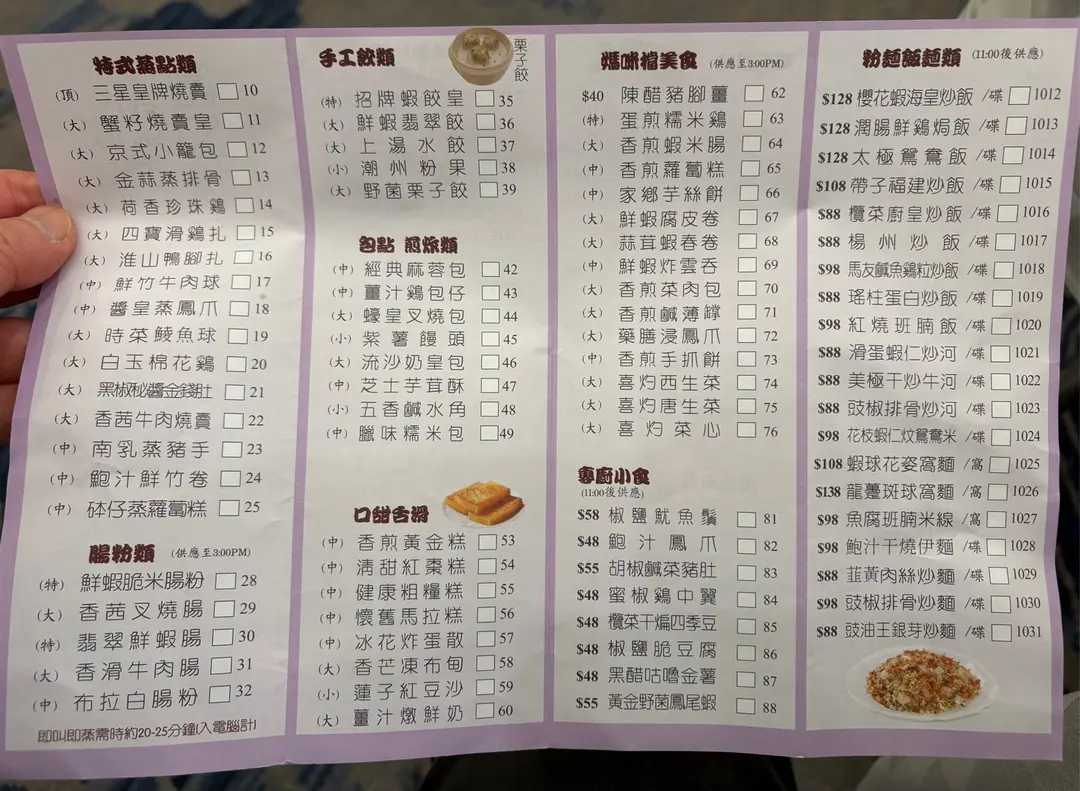 特式蒸點類
(頂) 三星皇牌燒賣 10
(大) 蟹籽燒賣皇 11
(大) 京式小籠包 12
(大) 金蒜蒸排骨 13
(大) 荷香珍珠鷄 14
(大) 四寶滑鷄扎 15
(大) 淮山鴨腳扎 16
(中) 鮮竹牛肉球 17
(中) 醬皇蒸鳳爪 18
(大) 時菜鯪魚球 19
(大) 白玉棉花鷄 20
(大) 黑椒秘醬金錢肚 21
(大) 香茜牛肉燒賣 22
(中) 南乳蒸豬手 23
(中) 鮑汁鮮竹卷 24
(中) 砵仔蒸蘿蔔糕 25
腸粉類 (供應至3:00PM)
(特) 鮮蝦脆米腸粉 28
(大) 香茜叉燒腸 29
(特) 翡翠鮮蝦腸 30
(大) 香滑牛肉腸 31
(中) 布拉白腸粉 32
即叫即蒸需時約20-25分鐘(入電腦計)
手工餃類
栗子餃
(特) 招牌蝦餃皇 35
(大) 鮮蝦翡翠餃 36
(大) 上湯水餃 37
(小) 潮州粉果 38
(大) 野菌栗子餃 39
包點 煎炸類
(中) 經典麻蓉包 42
(中) 薑汁鷄包仔 43
(大) 蠔皇叉燒包 44
(小) 紫薯饅頭 45
(大) 流沙奶皇包 46
(中) 芝士芋茸酥 47
(小) 五香鹹水角 48
(中) 臘味糯米包 49
口甜舌滑
(中) 香煎黃金糕 53
(中) 清甜紅棗糕 54
(中) 健康粗糧糕 55
(中) 懷舊馬拉糕 56
(中) 冰花炸蛋散 57
(大) 香芒凍布甸 58
(小) 蓮子紅豆沙 59
(大) 薑汁燉鮮奶 60
媽咪檔美食 (供應至3:00PM)
$40 陳醋豬腳薑 62
(特) 蛋煎糯米鷄 63
(大) 香煎蝦米腸 64
(中) 香煎蘿蔔糕 65
(中) 家鄉芋絲餅 66
(大) 鮮蝦腐皮卷 67
(大) 蒜茸蝦春卷 68
(中) 鮮蝦炸雲吞 69
(大) 香煎菜肉包 70
(大) 香煎鹹薄罉 71
(大) 藥膳浸鳳爪 72
(中) 香煎手抓餅 73
(大) 喜灼西生菜 74
(大) 喜灼唐生菜 75
(大) 喜灼菜心 76
專廚小食
(11:00後供應)
$58 椒鹽魷魚鬚 81
$48 鮑汁鳳爪 82
$55 胡椒鹹菜豬肚 83
$48 蜜椒鷄中翼 84
$48 欖菜干煸四季豆 85
$48 椒鹽脆豆腐 86
$48 黑醋咕嚕金薯 87
$55 黃金野菌鳳尾蝦 88
粉麵飯麵類 (11:00後供應)
$128 櫻花蝦海皇炒飯 /碟 1012
$128 潤腸鮮鷄焗飯 /碟 1013
$128 太極鴛鴦飯 /碟 1014
$108 帶子福建炒飯 /碟 1015
$88 欖菜廚皇炒飯 /碟 1016
$88 楊州炒飯 /碟 1017
$98 馬友鹹魚鷄粒炒飯 /碟 1018
$88 瑤柱蛋白炒飯 /碟 1019
$98 紅燒班腩飯 /碟 1020
$88 滑蛋蝦仁炒河 /碟 1021
$88 美極干炒牛河 /碟 1022
$88 豉椒排骨炒河 /碟 1023
$98 花枝蝦仁炆鴛鴦米 /碟 1024
$108 蝦球花姿窩麵 /窩 1025
$138 龍躉斑球窩麵 /窩 1026
$98 魚腐班腩米線 /窩 1027
$98 鮑汁干燒伊麵 /碟 1028
$88 韮黃肉絲炒麵 /碟 1029
$98 豉椒排骨炒麵 /碟 1030
$88 豉油王銀芽炒麵 /碟 1031